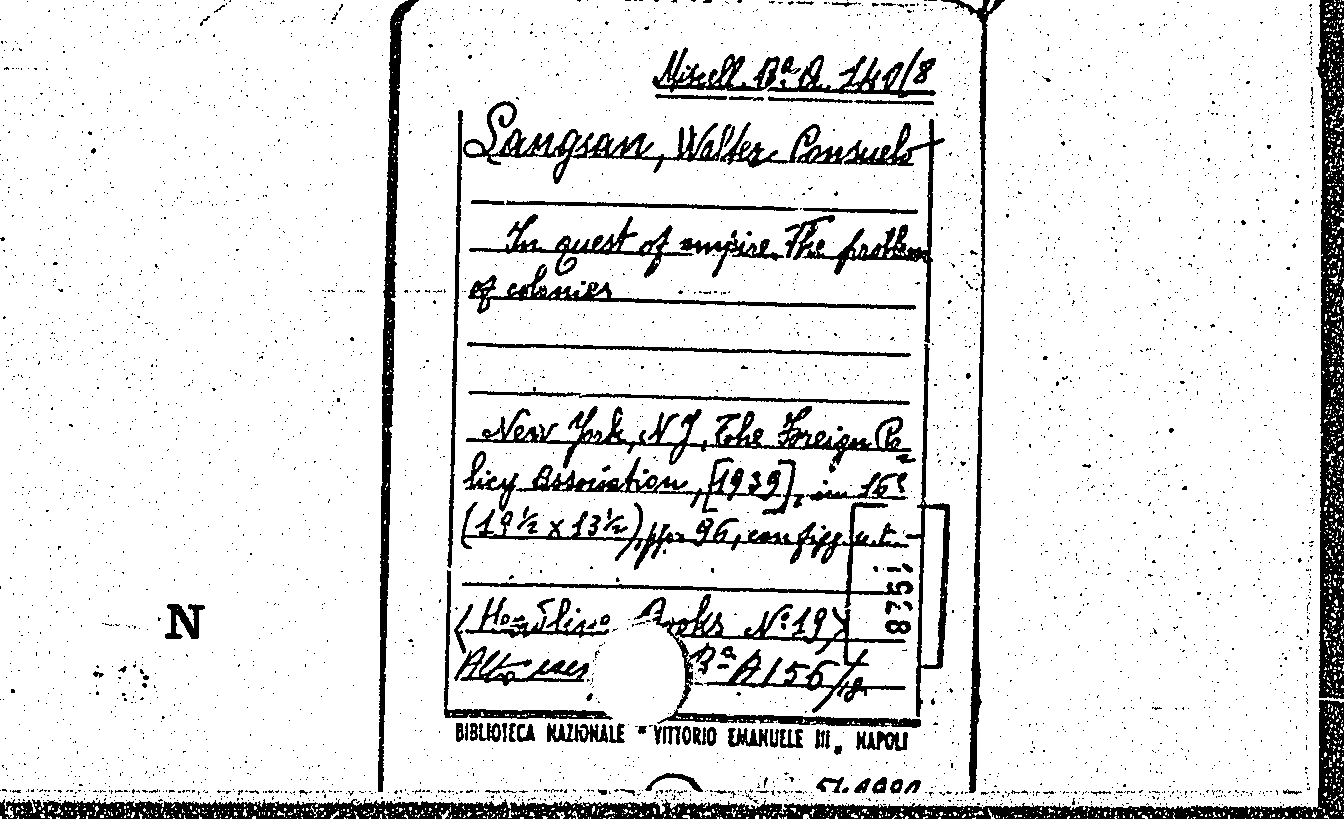 Miscell. Ba. A. 140/8
Langsan, Walter Consuelo
In quest of empire. The problem
of colonies
New York, N J, The Foreign Po
licy Association, [1939], in 16º
(19½ x 13½), pp. 96, con figg. n.t.
875;
< Headline Books Nº 19 >
N
Altro es. Ba A 156/
BIBLIOTECA NAZIONALE " VITTORIO EMANUELE III „ NAPOLI